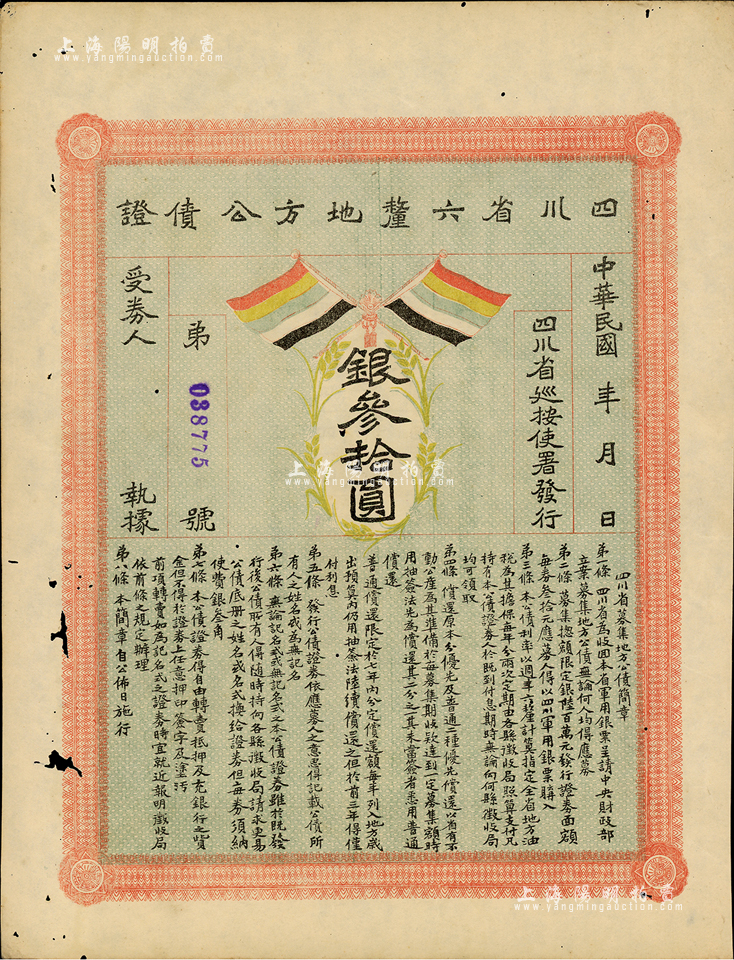 上海陽明拍賣
www.yangmingauction.com
上海陽明拍賣
www.yangmingauction.com
四川省六釐地方公債證
中華民國 年 月 日
四川省巡按使署發行
銀參拾圓
弟 038775 號
受券人 執據
四川省募集地方公債簡章
第一條 四川省為收回本省軍用銀票呈請中央財政部
立案募集地方公債無論何人均得應募
第二條 募集總額限定銀陸百萬元發行證券面額
每券叁拾元應募人得以四川軍用銀票購入
第三條 本公債利率以週年六釐計算指定全省地方油
稅為其擔保每年分兩次定期由各縣徵收局照算支付凡
持有本公債證券人於既到付息期時無論向何縣徵收局
均可領取
第四條 償還原本分優先及普通二種優先償還以省有不
動公產為其準備於每募集期收款達到一定募集額時
用抽簽法先為償還其二分之一其未當簽者悉用普通
償還
普通償還限定於七年內分定償還額每年列入地方歲
出預算內仍用抽簽法陸續償還之但於前三年得僅
付利息
第五條 發行公債證券依應募人之意思得記載公債所
有人之姓名或為無記名
第六條 無論記名式或無記名式之本公債證券雖於既發
行後公債所有人得隨時持向各縣徵收局請求更易
公債底冊之姓名或名式換給證券但每券須納
使費銀叁角
第七條 本公債證券得自由轉賣抵押及充銀行之貲
金但不得於證券上任意押印簽字及塗汚
前項轉賣如為記名式之證券時宜就近報明徵收局
依前條之規定辦理
第八條 本簡章自公佈日施行
上海陽明拍賣
www.yangmingauction.com